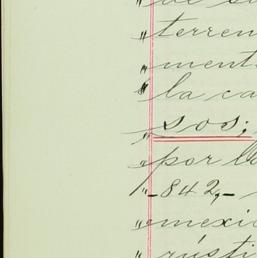 " de su
" terren
" ment
" la ca
" sos;
" por la
"-842,-
" mexic
" rústi